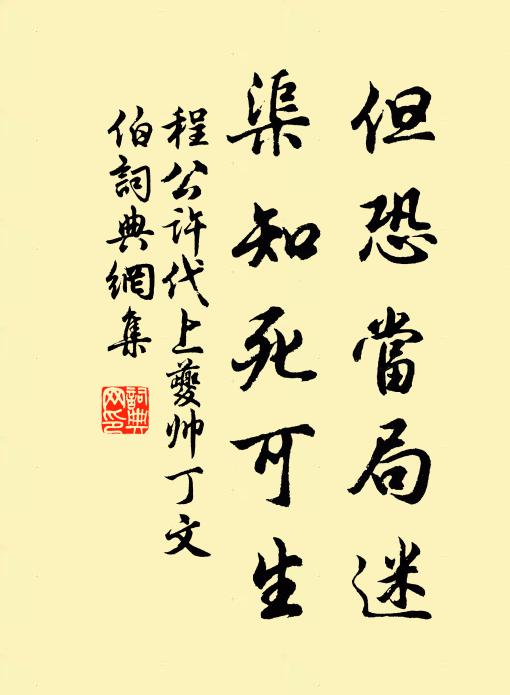 但恐當局迷
渠知死可生
程公許代上夔帅丁文
伯詞典網集
詞典
网印